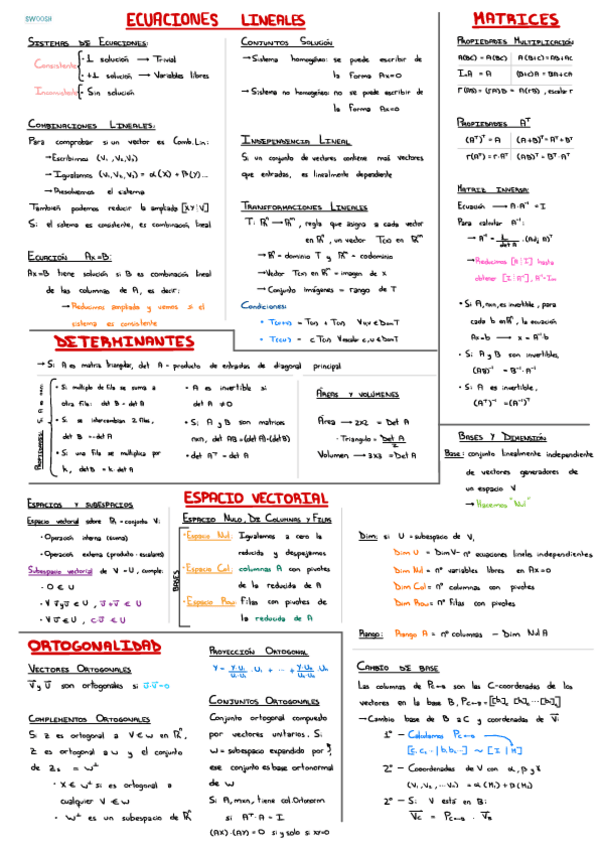 SWOOSH
ECUACIONES LINEALES
SISTEMAS DE ECUACIONES:
Consistente
· 1 solución → Trivial
· +1 solución → Variables libres
Inconsistente
· Sin solución
COMBINACIONES LINEALES:
Para comprobar si un vector es Comb. Lin:
→ Escribimos (V₁, V₂, V₃)
→ Igualamos (V₁, V₂, V₃) = α(X) + β(Y)...
→ Resolvemos el sistema
También podemos reducir la ampliada [x,y|V]
Si el sistema es consistente, es combinación lineal
ECUACIÓN Ax=B:
Ax=B tiene solución si B es combinación lineal
de las columnas de A, es decir:
→ Reducimos ampliada y vemos si el
sistema es consistente
CONJUNTOS SOLUCIÓN
→ Sistema homogéneo: se puede escribir de
la forma Ax=0
→ Sistema no homogéneo: no se puede escribir de
la forma Ax=0
INDEPENDENCIA LINEAL
Si un conjunto de vectores contiene más vectores
que entradas, es linealmente dependiente
TRANSFORMACIONES LINEALES
T: ℝⁿ → ℝᵐ, regla que asigna a cada vector
en ℝⁿ, un vector T(x) en ℝᵐ
→ ℝⁿ = dominio T y ℝᵐ = codominio
→ Vector T(x) en ℝᵐ = imagen de x
→ Conjunto imágenes = rango de T
Condiciones:
• T(u+v) = T(u) + T(v) ∀u,v ∈ Dom T
• T(cu) = c T(u) ∀escalar c, u ∈ Dom T
MATRICES
PROPIEDADES MULTIPLICACIÓN
A(BC) = A(BC) A(B+C)=AB+AC
Iₘ A = A (B+C)A = BA+CA
r(AB) = (rA)B = A(rB), escalar r
PROPIEDADES Aᵀ
(Aᵀ)ᵀ = A (A+B)ᵀ = Aᵀ + Bᵀ
r(A)ᵀ = r·Aᵀ (AB)ᵀ = Bᵀ·Aᵀ
MATRIZ INVERSA:
Ecuación → A·A⁻¹ = I
Para calcular A⁻¹:
→ Reducimos [A | I] hasta
obtener [I | A⁻¹], A⁻¹·Iₘ
• Si A, nxn, es invertible, para
cada b en ℝⁿ, la ecuación
Ax=b → x = A⁻¹·b
• Si A y B son invertibles,
(AB)⁻¹ = B⁻¹·A⁻¹
• Si A es invertible,
(Aᵀ)⁻¹ = (A⁻¹)ᵀ
DETERMINANTES
→ Si A es matriz triangular, det A = producto de entradas de diagonal principal
• Si múltiplo de fila se suma a
otra fila: det B = det A
• Si se intercambian 2 filas,
det B = -det A
• Si una fila se multiplica por
k, det B = k·det A
• A es invertible si
det A ≠ 0
• Si A y B son matrices
nxn, det AB = (det A)·(det B)
• det Aᵀ = det A
ÁREAS Y VOLÚMENES
Área → 2x2 = Det A
· Triángulo = Det A / 2
Volumen → 3x3 = Det A
BASES Y DIMENSIÓN
Base: conjunto linealmente independiente
de vectores generadores de
un espacio V
→ Hacemos "Nul"
ESPACIO VECTORIAL
ESPACIOS Y SUBESPACIOS
Espacio vectorial sobre ℝ = conjunto V:
· Operación interna (suma)
· Operación externa (producto · escalares)
Subespacio vectorial de V = U, cumple:
· 0 ∈ U
ESPACIO NULO, DE COLUMNAS Y FILAS
BASES
· Espacio Nul: Igualamos a cero la
reducida y despejamos
· Espacio Col: columnas A con pivotes
de la reducida de A
· Espacio Row: Filas con pivotes de
la reducida de A
Dim: si U = subespacio de V,
Dim U = Dim V - nº ecuaciones lineales independientes
Dim Nul = nº variables libres en Ax=0
Dim Col = nº columnas con pivotes
Dim Row = nº Filas con pivotes
Rango: Rango A = nº columnas - Dim Nul A
ORTOGONALIDAD
VECTORES ORTOGONALES
V y U son ortogonales si U·V=0
COMPLEMENTOS ORTOGONALES
Si z es ortogonal a V ∈ w en ℝⁿ,
z es ortogonal a w y el conjunto
de zₛ = w⊥
· x ∈ w⊥ si es ortogonal a
cualquier V ∈ w
· w⊥ es un subespacio de ℝⁿ
PROYECCIÓN ORTOGONAL
CONJUNTOS ORTOGONALES
Conjunto ortogonal compuesto
por vectores unitarios. Si
w = subespacio expandido por
ese conjunto es base ortonormal
de w
Si A, mxn, tiene col. Ortonorm
si Aᵀ·A = I
(AX)·(AY) = 0 si y solo si xy=0
CAMBIO DE BASE
Las columnas de Pc←B son las C-coordenadas de los
vectores en la base B,
→ Cambio base de B a C y coordenadas de V
1º - Calculamos Pc←B
2º - Coordenadas de V con α, β y γ
2º - Si V está en B:
Vc = Pc←B · VB